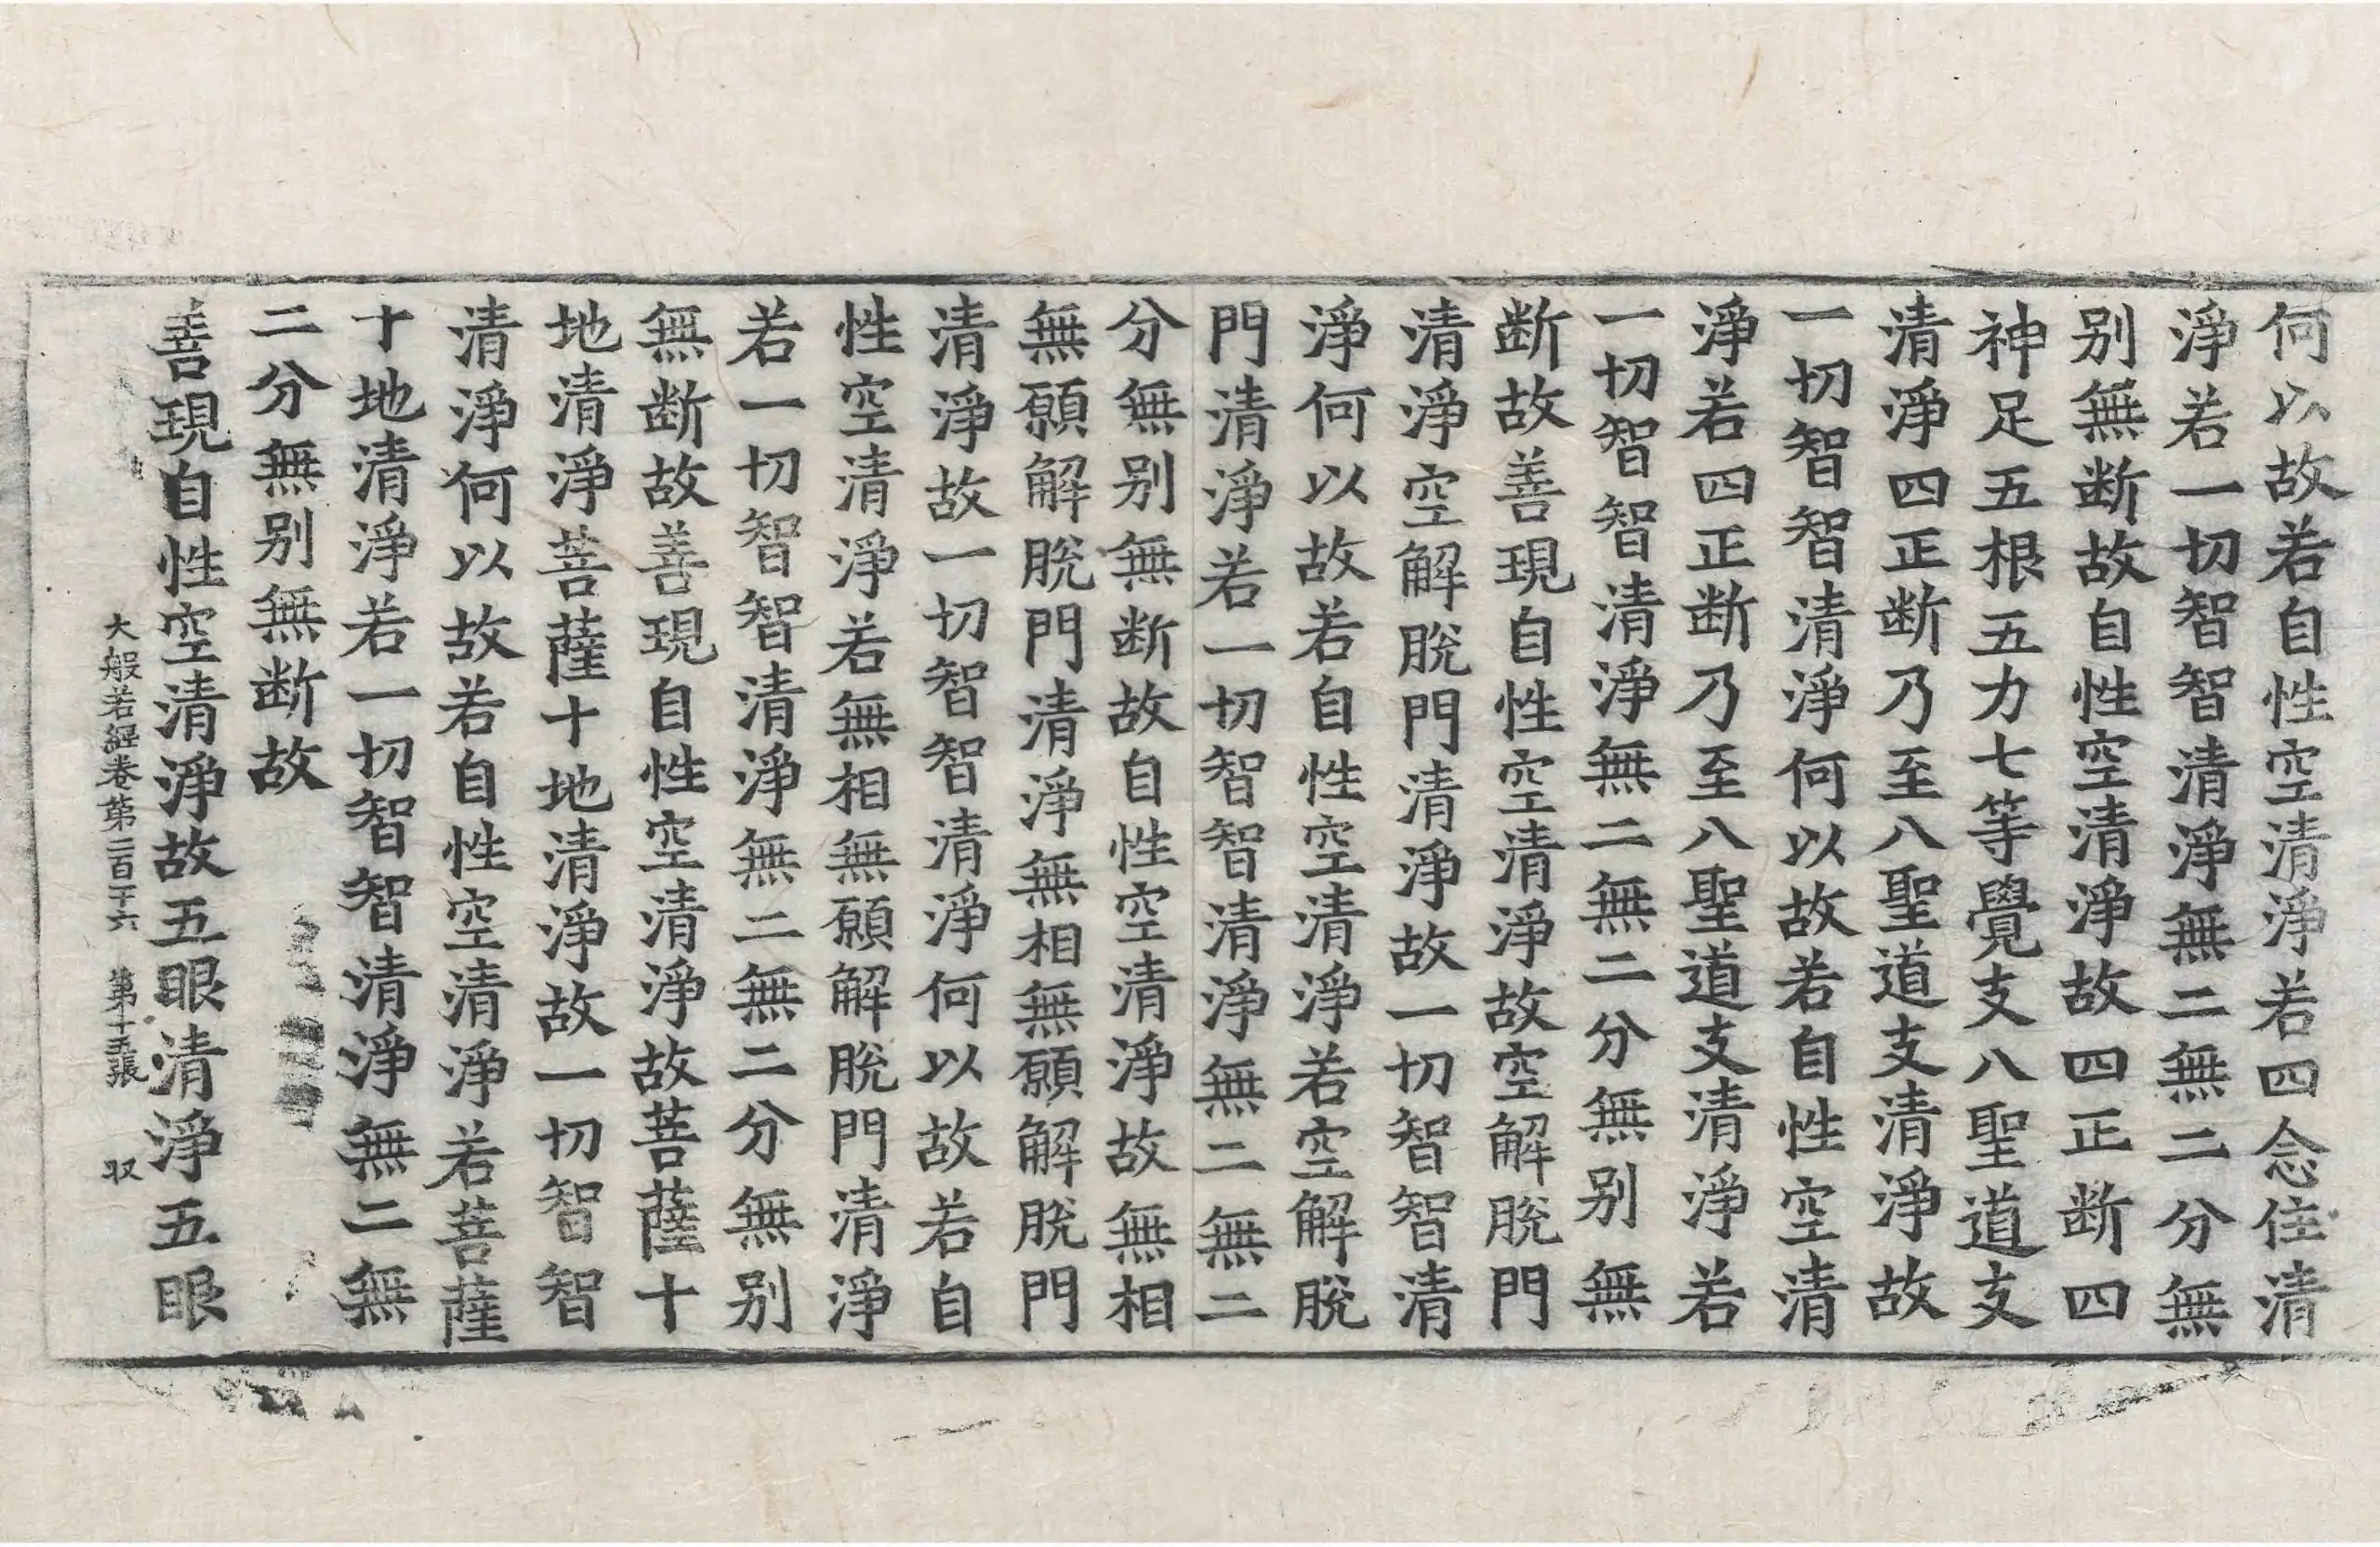 何以故若自性空清淨若四念住清
淨若一切智智清淨無二無二分無
别無断故自性空清淨故四正断四
神足五根五力七等覺支八聖道支
清淨四正断乃至八聖道支清淨故
一切智智清淨何以故若自性空清
淨若四正断乃至八聖道支清淨若
一切智智清淨無二無二分無别無
断故善現自性空清淨故空解脫門
清淨空解脫門清淨故一切智智清
淨何以故若自性空清淨若空解脫
門清淨若一切智智清淨無二無二
分無别無断故自性空清淨故無相
無願解脫門清淨無相無願解脫門
清淨故一切智智清淨何以故若自
性空清淨若無相無願解脫門清淨
若一切智智清淨無二無二分無别
無断故善現自性空清淨故菩薩十
地清淨菩薩十地清淨故一切智智
清淨何以故若自性空清淨若菩薩
十地清淨若一切智智清淨無二無
二分無别無断故
善現自性空清淨故五眼清淨五眼
大般若經卷第二百十六 第十五張 㕛